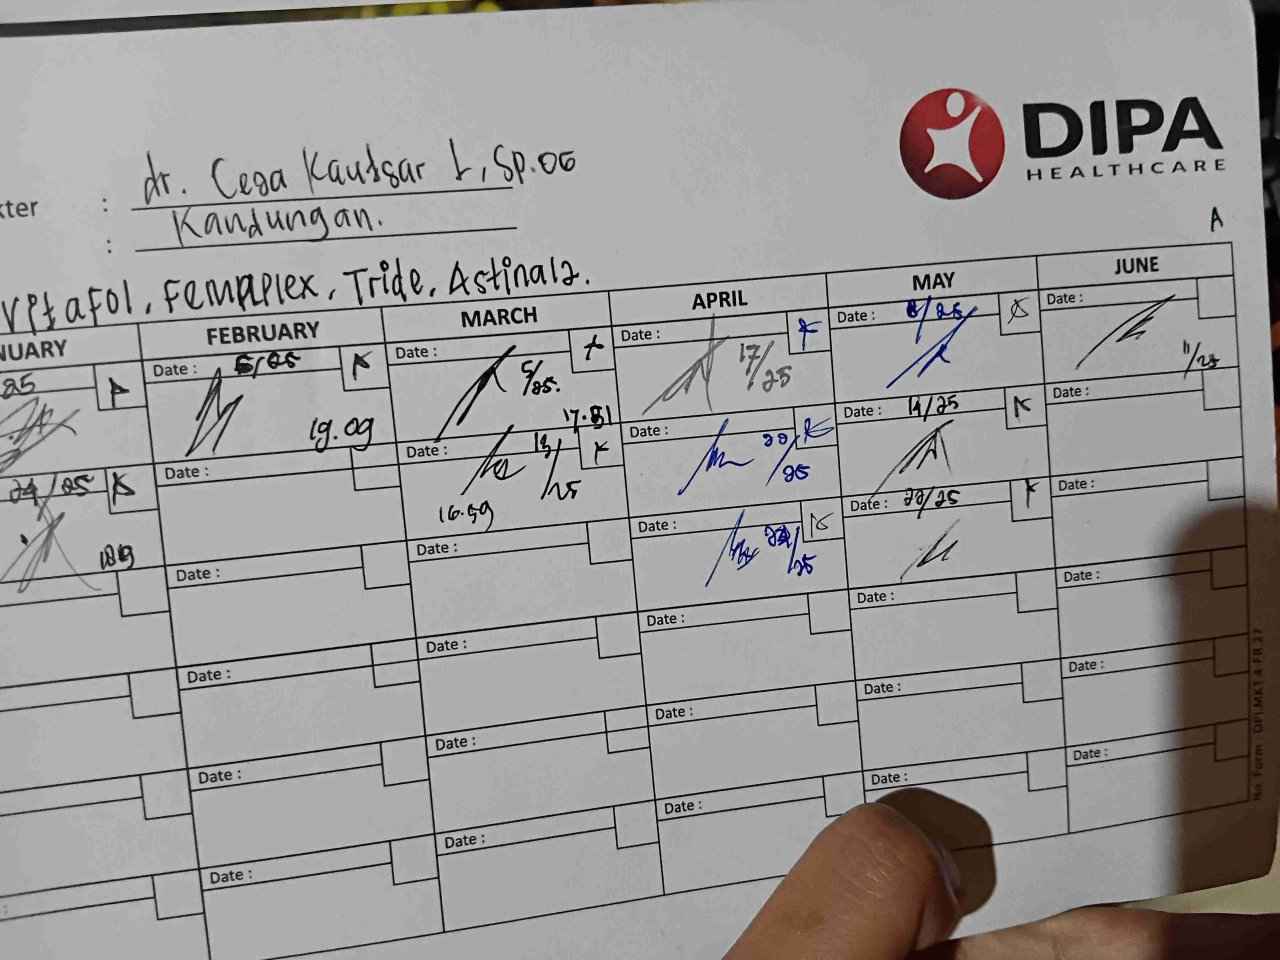 DIPA
HEALTHCARE
kter : dr. Cesa Kautsar L, Sp.OG
: Kandungan.
A
Vitafol, Femaplex, Tride, Astinal2.
NUARY FEBRUARY MARCH APRIL MAY JUNE
25 A Date : 5/25 A Date : + Date : A Date : 8/25 A Date :
19.09 5/25. 17.51 17/25 11/25
24/25 A Date : Date : 13/25 A Date : A Date : 14/25 A Date :
16.59 25
Date : Date : Date : A Date : 22/25 A Date :
25
Date : Date : Date : Date : Date :
Date : Date : Date : Date : Date :
Date : Date : Date : Date : Date :
No Form : DPI.MKT.4-FR.27